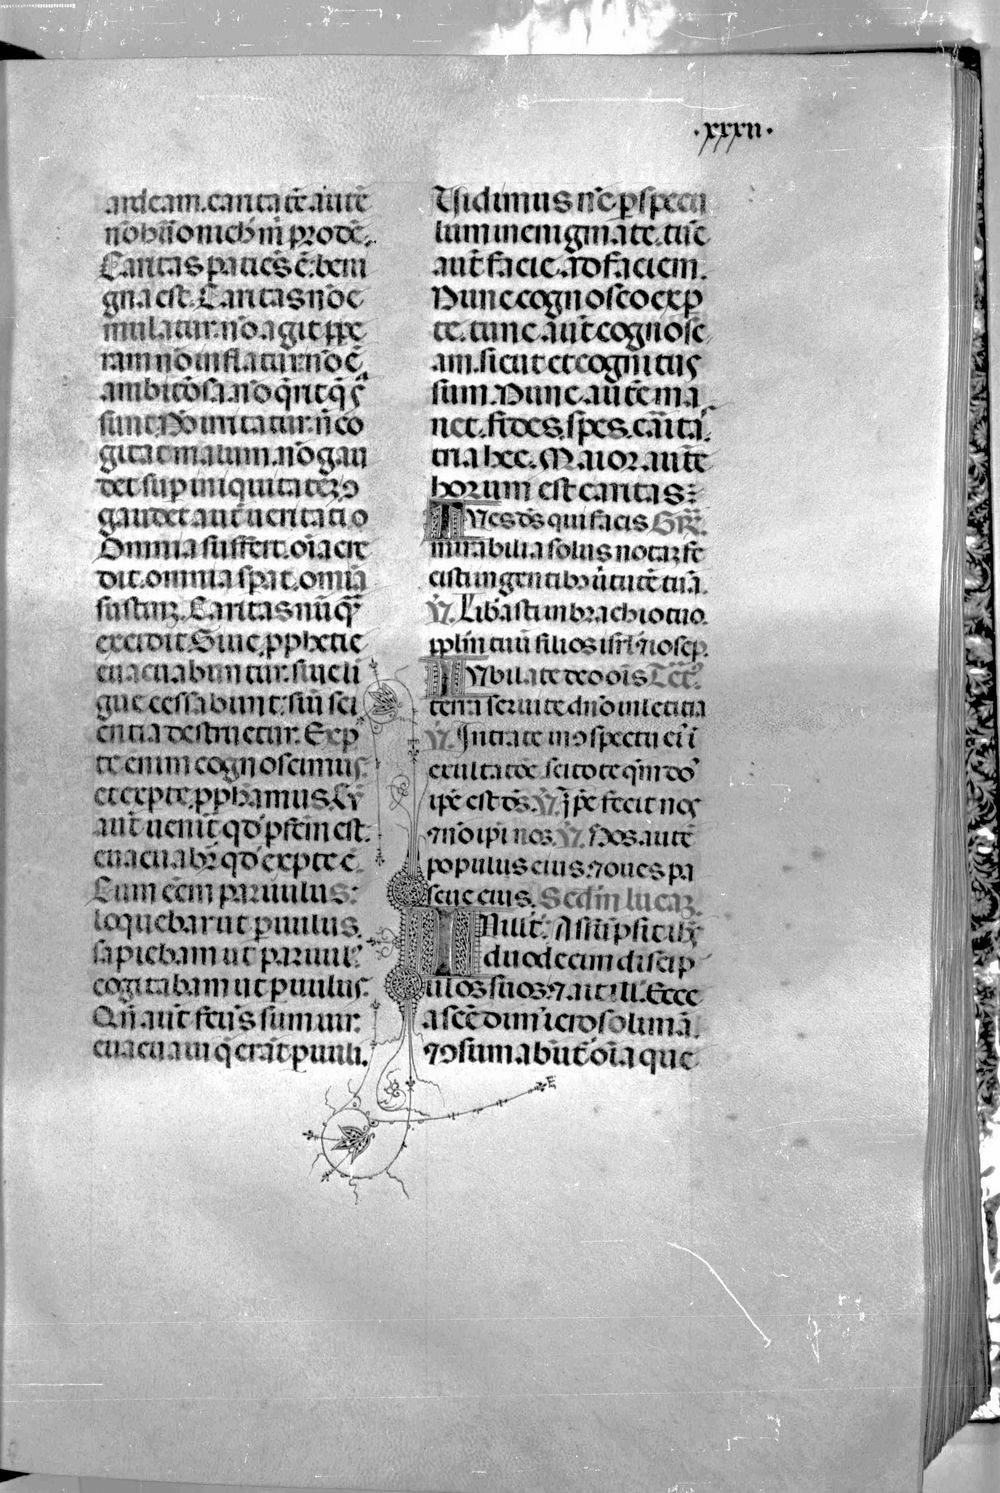 .xxxii.
ardeam. caritatē. autē
nō hūo nich̄ m̄ prodē.
Caritas patiēs ē. beni
gna est. Caritas nō e
mulatur. nō agit ꝑpe
ram nō inflatur. nō ē
ambitōsa. nō q̄rit q̄ s̄
sunt. Nō irritatur. n̄ co
gitat malum. nō gau
det suꝑ iniquitatez ꝯ
gaudet aut̄ ueritati o
Omnia suffert. oīa cre
dit. omnia sꝑat. omīa
sustinꝫ. Caritas nūq̄
excidit. Siue ꝓphetie
euacuabuntur. siue li
gue cessabunt: siū sci
entia destruetur. Ex ꝑ
te enim cognoscimus:
et ex ꝑte. ꝓphamus. Cū
aut̄ uenit̄ qd̓ ꝑfc̄m est.
euacuabr̄ qd̓ ex ꝑte ē.
Cum eēm paruulus:
loquebar ut ꝑuulus.
sapiebam ut paruul̓
cogitabam ut ꝑuulus:
Qn̄ aut̄ fcūs sum uir.
euacuaui q̄ erāt ꝑuuli.
Vidimus nc̄ ꝑ specu
lum in enigmate. tūc
aut̄ facie. ad faciem.
Nunc cognosco ex ꝑ
te. tunc. aut̄ cognosc
am. sicut et cognitus
sum. Nunc. autē ma
net. fides. spes. cārita.
tria hec. Maior. autē
horum est caritas:
TV es dēs qui facis Gr̄.
mirabilia solus notaz fe
cisti in gentibꝫ ūtutē tuā.
V̄. Lib̄asti in brachio tuo
ppl̄m tuū filios isrl̓ ⁊ iosep.
IVbilate deo oīs Tct̄.
terra seruite dn̄o in letitia
V̄. Intrate in ꝯspectu ei̓ ī
exultatōe. scitote qm̄ do̓
ipē est dēs. V̄. Ipē fecit nos
⁊ nō ipi nos. V̄. Nos. autē
populus eius. ⁊ oues pa
scue eius. Scd̄m lucaz.
IN illo t̄. Assūpsit ihc̄
duodecim discip
ulos suos. ⁊ ait ill̓. Ecce
ascēdim̓ ierosolimā.
⁊ ꝯsumabūt̄ oīa que